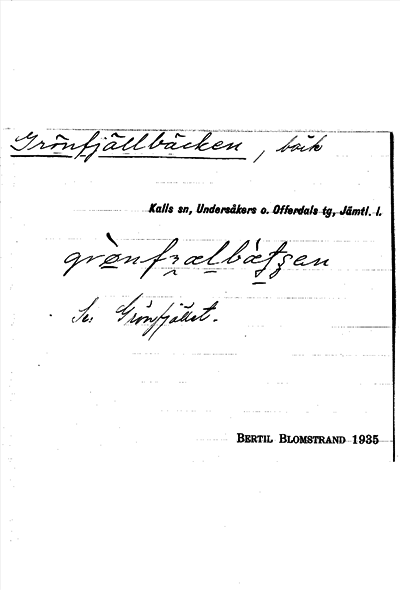 Grönfjällbäcken, bäck
Kalls sn, Undersåkers o. Offerdals tg, Jämtl. l.
Se: Grönfjället.
BERTIL BLOMSTRAND 1935